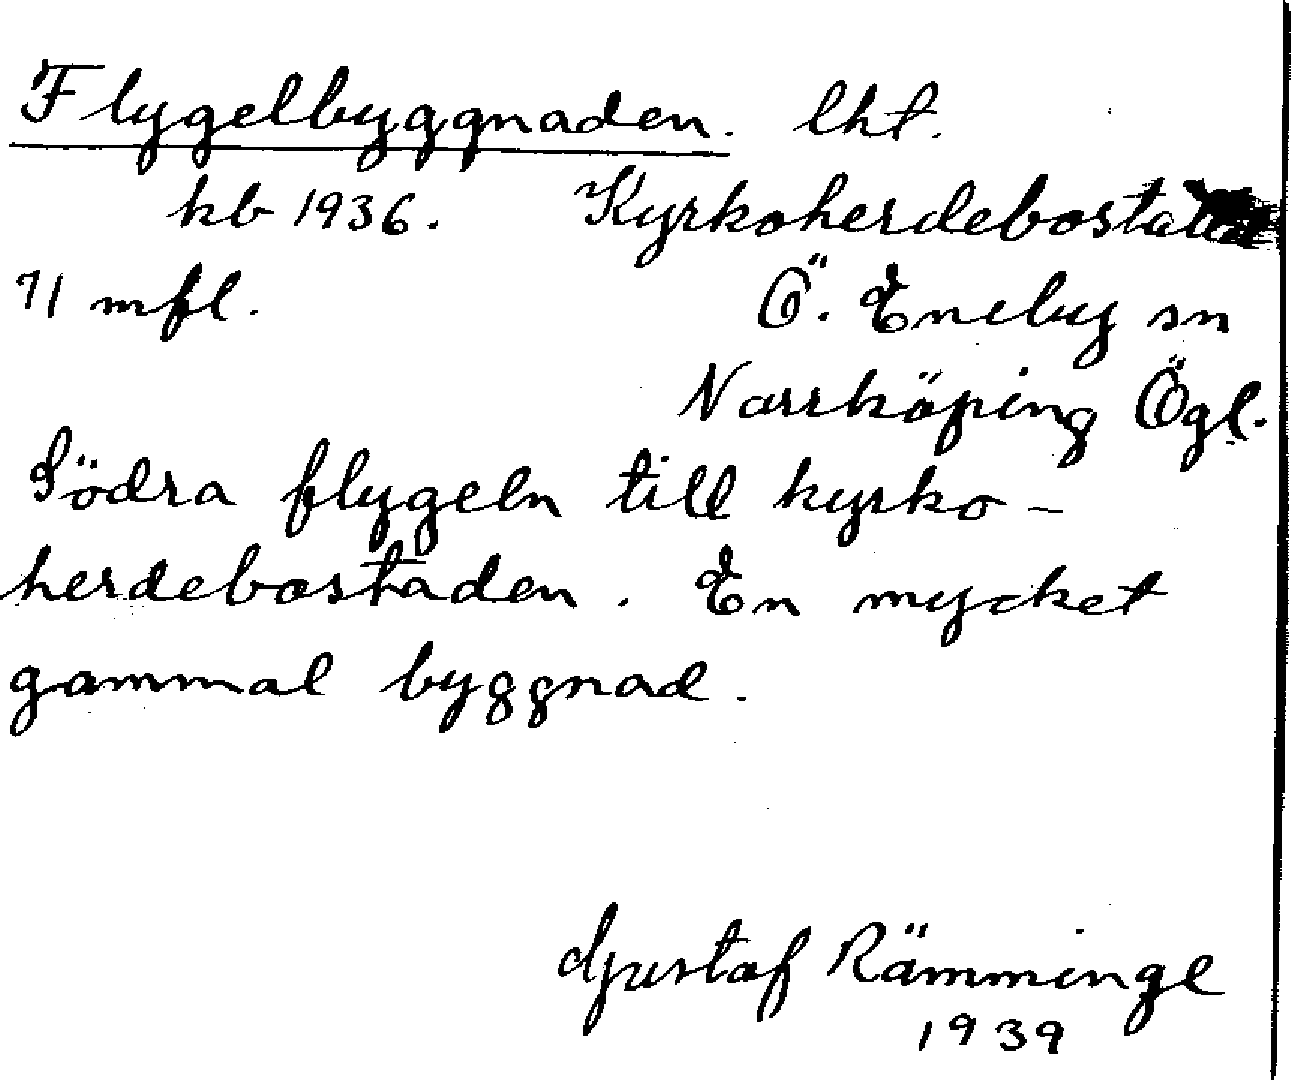 Flygelbyggnaden. lht.
kb 1936. Kyrkoherdebostaden
1/1 mfl. Ö. Eneby sn
Norrköping Ögl.
Södra flygeln till kyrko-
herdebostaden. En mycket
gammal byggnad.
Gustaf Rämminge
1939